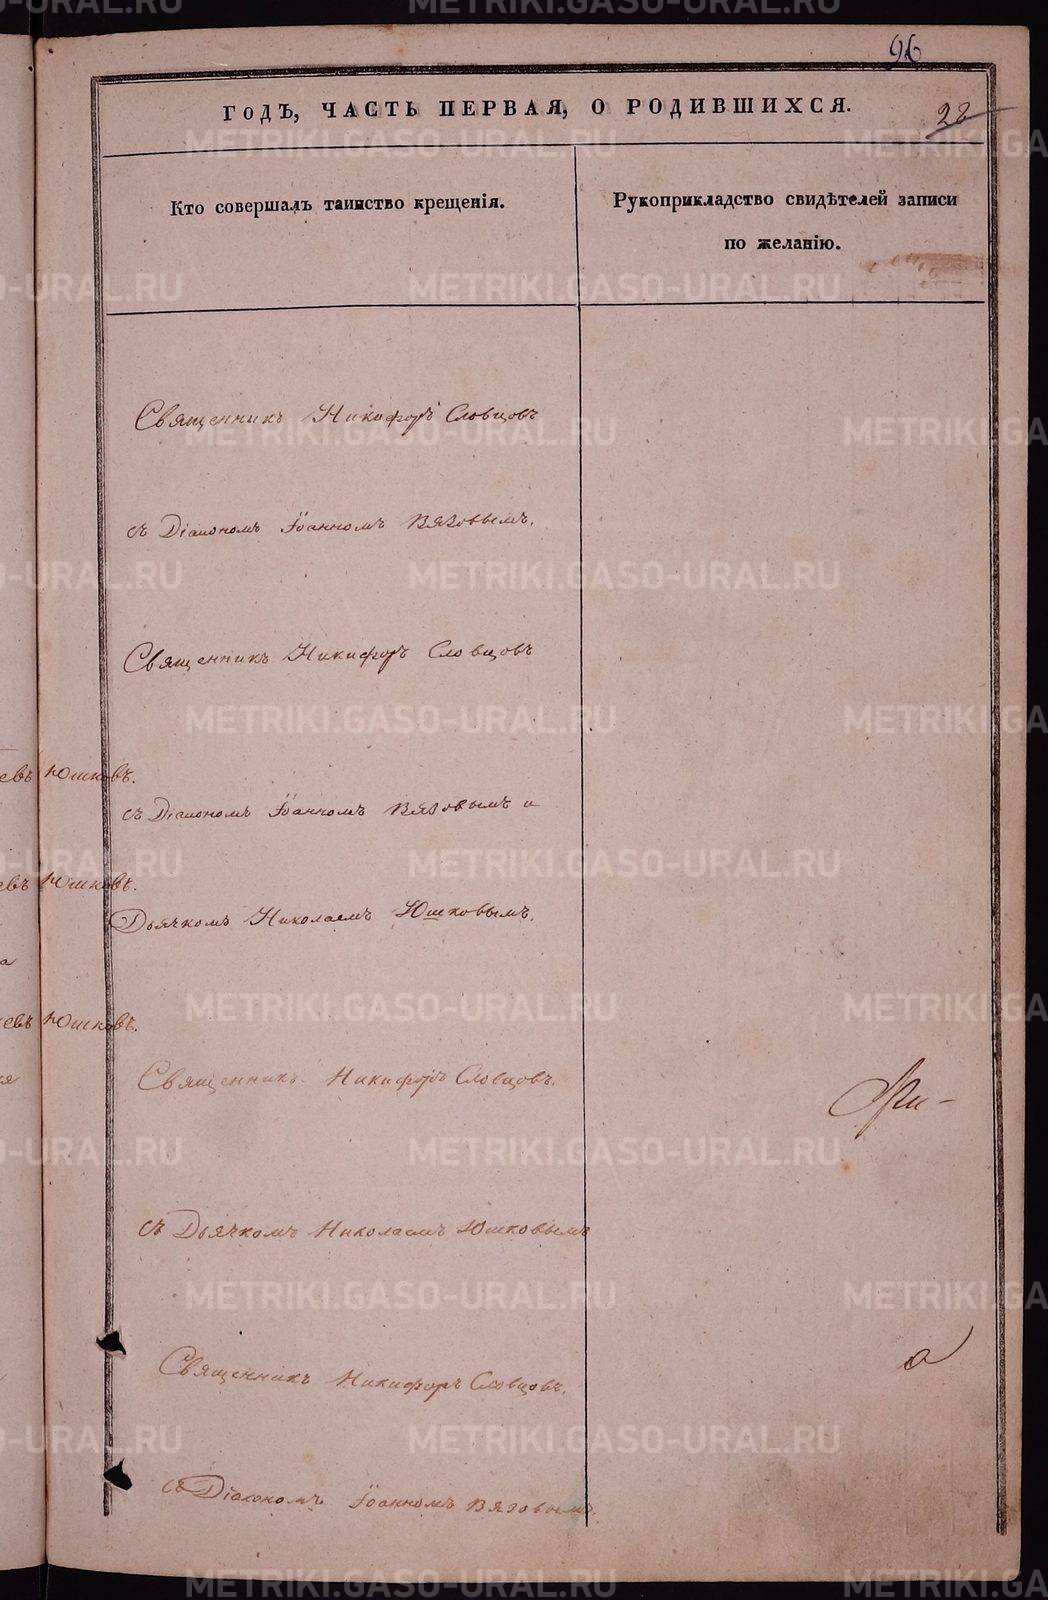 96
ГОДЪ, ЧАСТЬ ПЕРВАЯ, О РОДИВШИХСЯ.
28
Кто совершалъ таинство крещенія.
Рукоприкладство свидѣтелей записи
по желанію.
Священникъ Никифоръ Словцовъ
съ Діакономъ Іоанномъ Вязовымъ.
Священникъ Никифоръ Словцовъ
евъ Юшковъ.
съ Діакономъ Іоанномъ Вязовымъ и
евъ Юшковъ.
Дьячкомъ Николаемъ Юшковымъ.
а
евъ Юшковъ.
Священникъ Никифоръ Словцовъ.
съ Дьячкомъ Николаемъ Юшковымъ
Священникъ Никифоръ Словцовъ.
а
съ Діакономъ Іоанномъ Вязовымъ.
METRIKI.GASO-URAL.RU